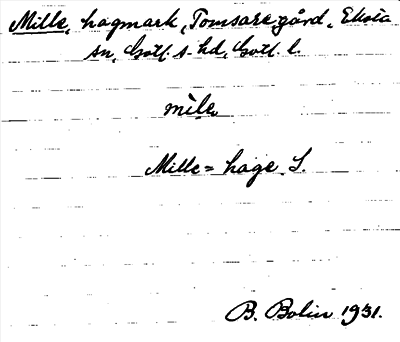 Mille, hagmark, Tomsarve gård, Eksta
sn, Gotl. s. hd, Gotl. l.
mìle
Mille = hage S.
B. Bolin 1931.